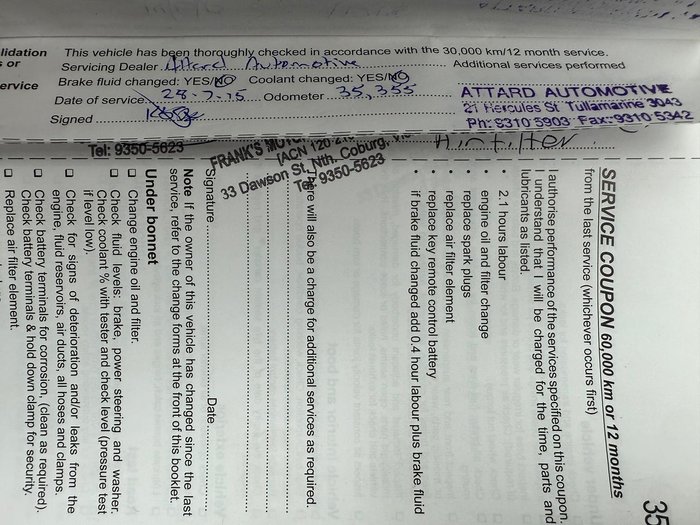 lidation
s or
ervice
This vehicle has been thoroughly checked in accordance with the 30,000 km/12 month service.
Servicing Dealer Attard Automotive Additional services performed
Brake fluid changed: YES/NO Coolant changed: YES/NO
Date of service 28-7-15 Odometer 35,355
Signed
ATTARD AUTOMOTIVE
21 Hercules St Tullamarine 3043
Ph: 9310 5903 Fax: 9310 5342
Tel: 9350-5623
FRANK'S
(ACN 120
33 Dawson St, Nth. Coburg,
Tel: 9350-5623
SERVICE COUPON 60,000 km or 12 months
from the last service (whichever occurs first)
I authorise performance of the services specified on this coupon.
I understand that I will be charged for the time, parts and
lubricants as listed.
• 2.1 hours labour
• engine oil and filter change
• replace spark plugs
• replace air filter element
• replace key remote control battery
• if brake fluid changed add 0.4 hour labour plus brake fluid
There will also be a charge for additional services as required.
Signature Date
Note If the owner of this vehicle has changed since the last
service, refer to the change forms at the front of this booklet.
Under bonnet
❑ Change engine oil and filter.
❑ Check fluid levels: brake, power steering and washer.
Check coolant % with tester and check level (pressure test
if level low).
❑ Check for signs of deterioration and/or leaks from the
engine, fluid reservoirs, air ducts, all hoses and clamps.
❑ Check battery terminals for corrosion, (clean as required).
Check battery terminals & hold down clamp for security.
❑ Replace air filter element.
35